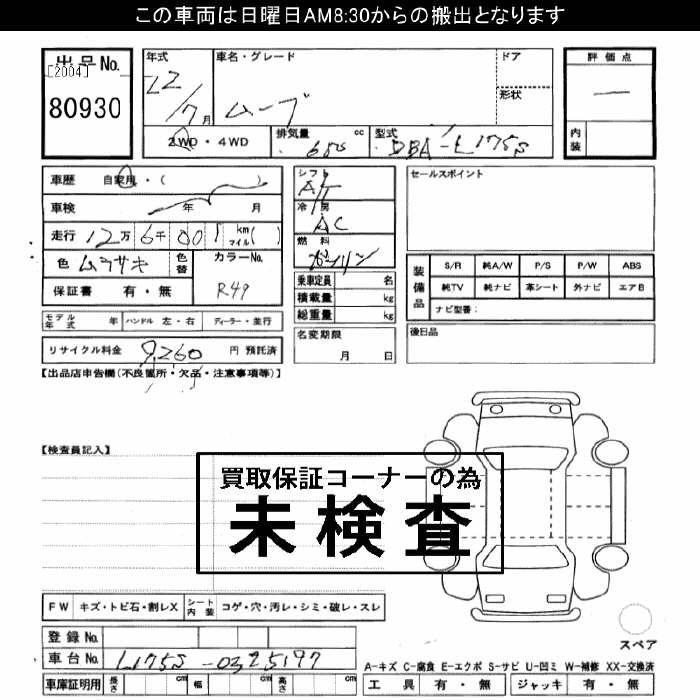 この車両は日曜日AM8:30からの搬出となります
出品No.
[2004]
80930
年式
22/7月
車名・グレード
ムーブ
ドア
形状
評価点
―
内装
2WD・4WD
排気量 cc
型式
DBA-L175S
車歴 自家用・( )
車検 年 月
走行 12万6千001 km マイル( )
色 ムラサキ
色替
カラーNo.
R49
保証書 有・無
モデル年式 年
ハンドル 左・右
ディーラー・並行
リサイクル料金 9,260 円 預託済
シフト
AT
冷房
AC
燃料
ガソリン
乗車定員 名
積載量 kg
総重量 kg
名変期限
月 日
セールスポイント
装備品
S/R 純A/W P/S P/W ABS
純TV 純ナビ 革シート 外ナビ エアB
ナビ型番:
後日品
【出品店申告欄(不良箇所・欠品・注意事項等)】
【検査員記入】
買取保証コーナーの為
未検査
FW キズ・トビ石・割レX
シート内装 コゲ・穴・汚レ・シミ・破レ・スレ
登録No.
車台No. L175S-0325197
車庫証明用 長さ cm 幅 cm 高さ cm
スペア
A-キズ C-腐食 E-エクボ S-サビ U-凹ミ W-補修 XX-交換済
工具 有・無 ジャッキ 有・無